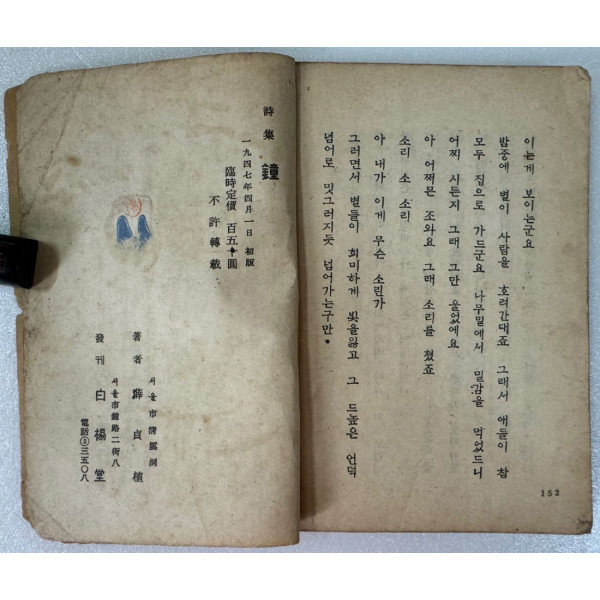 이는게 보이는군요
밤중에 별이 사람을 호려간대죠 그래서 얘들이 참
모두 집으로 가드군요 나무밑에서 밀감을 먹었드니
어찌 시든지 그래 그만 울었에요
아 어쩌믄 조와요 그래 소리를 쳤죠
소리 소 소리
아 내가 이게 무슨 소린가
그러면서 별들이 희미하게 빛을잃고 그 드높은 언덕
넘어로 밋그러지듯 넘어가는구만.
152
詩集 鐘
一九四七年四月一日 初版
臨時定價 百五十圓
不許轉載
서울市淸雲洞
著者 薛貞植
서울市鐘路二街八
發刊 白楊堂
電話③三五〇八